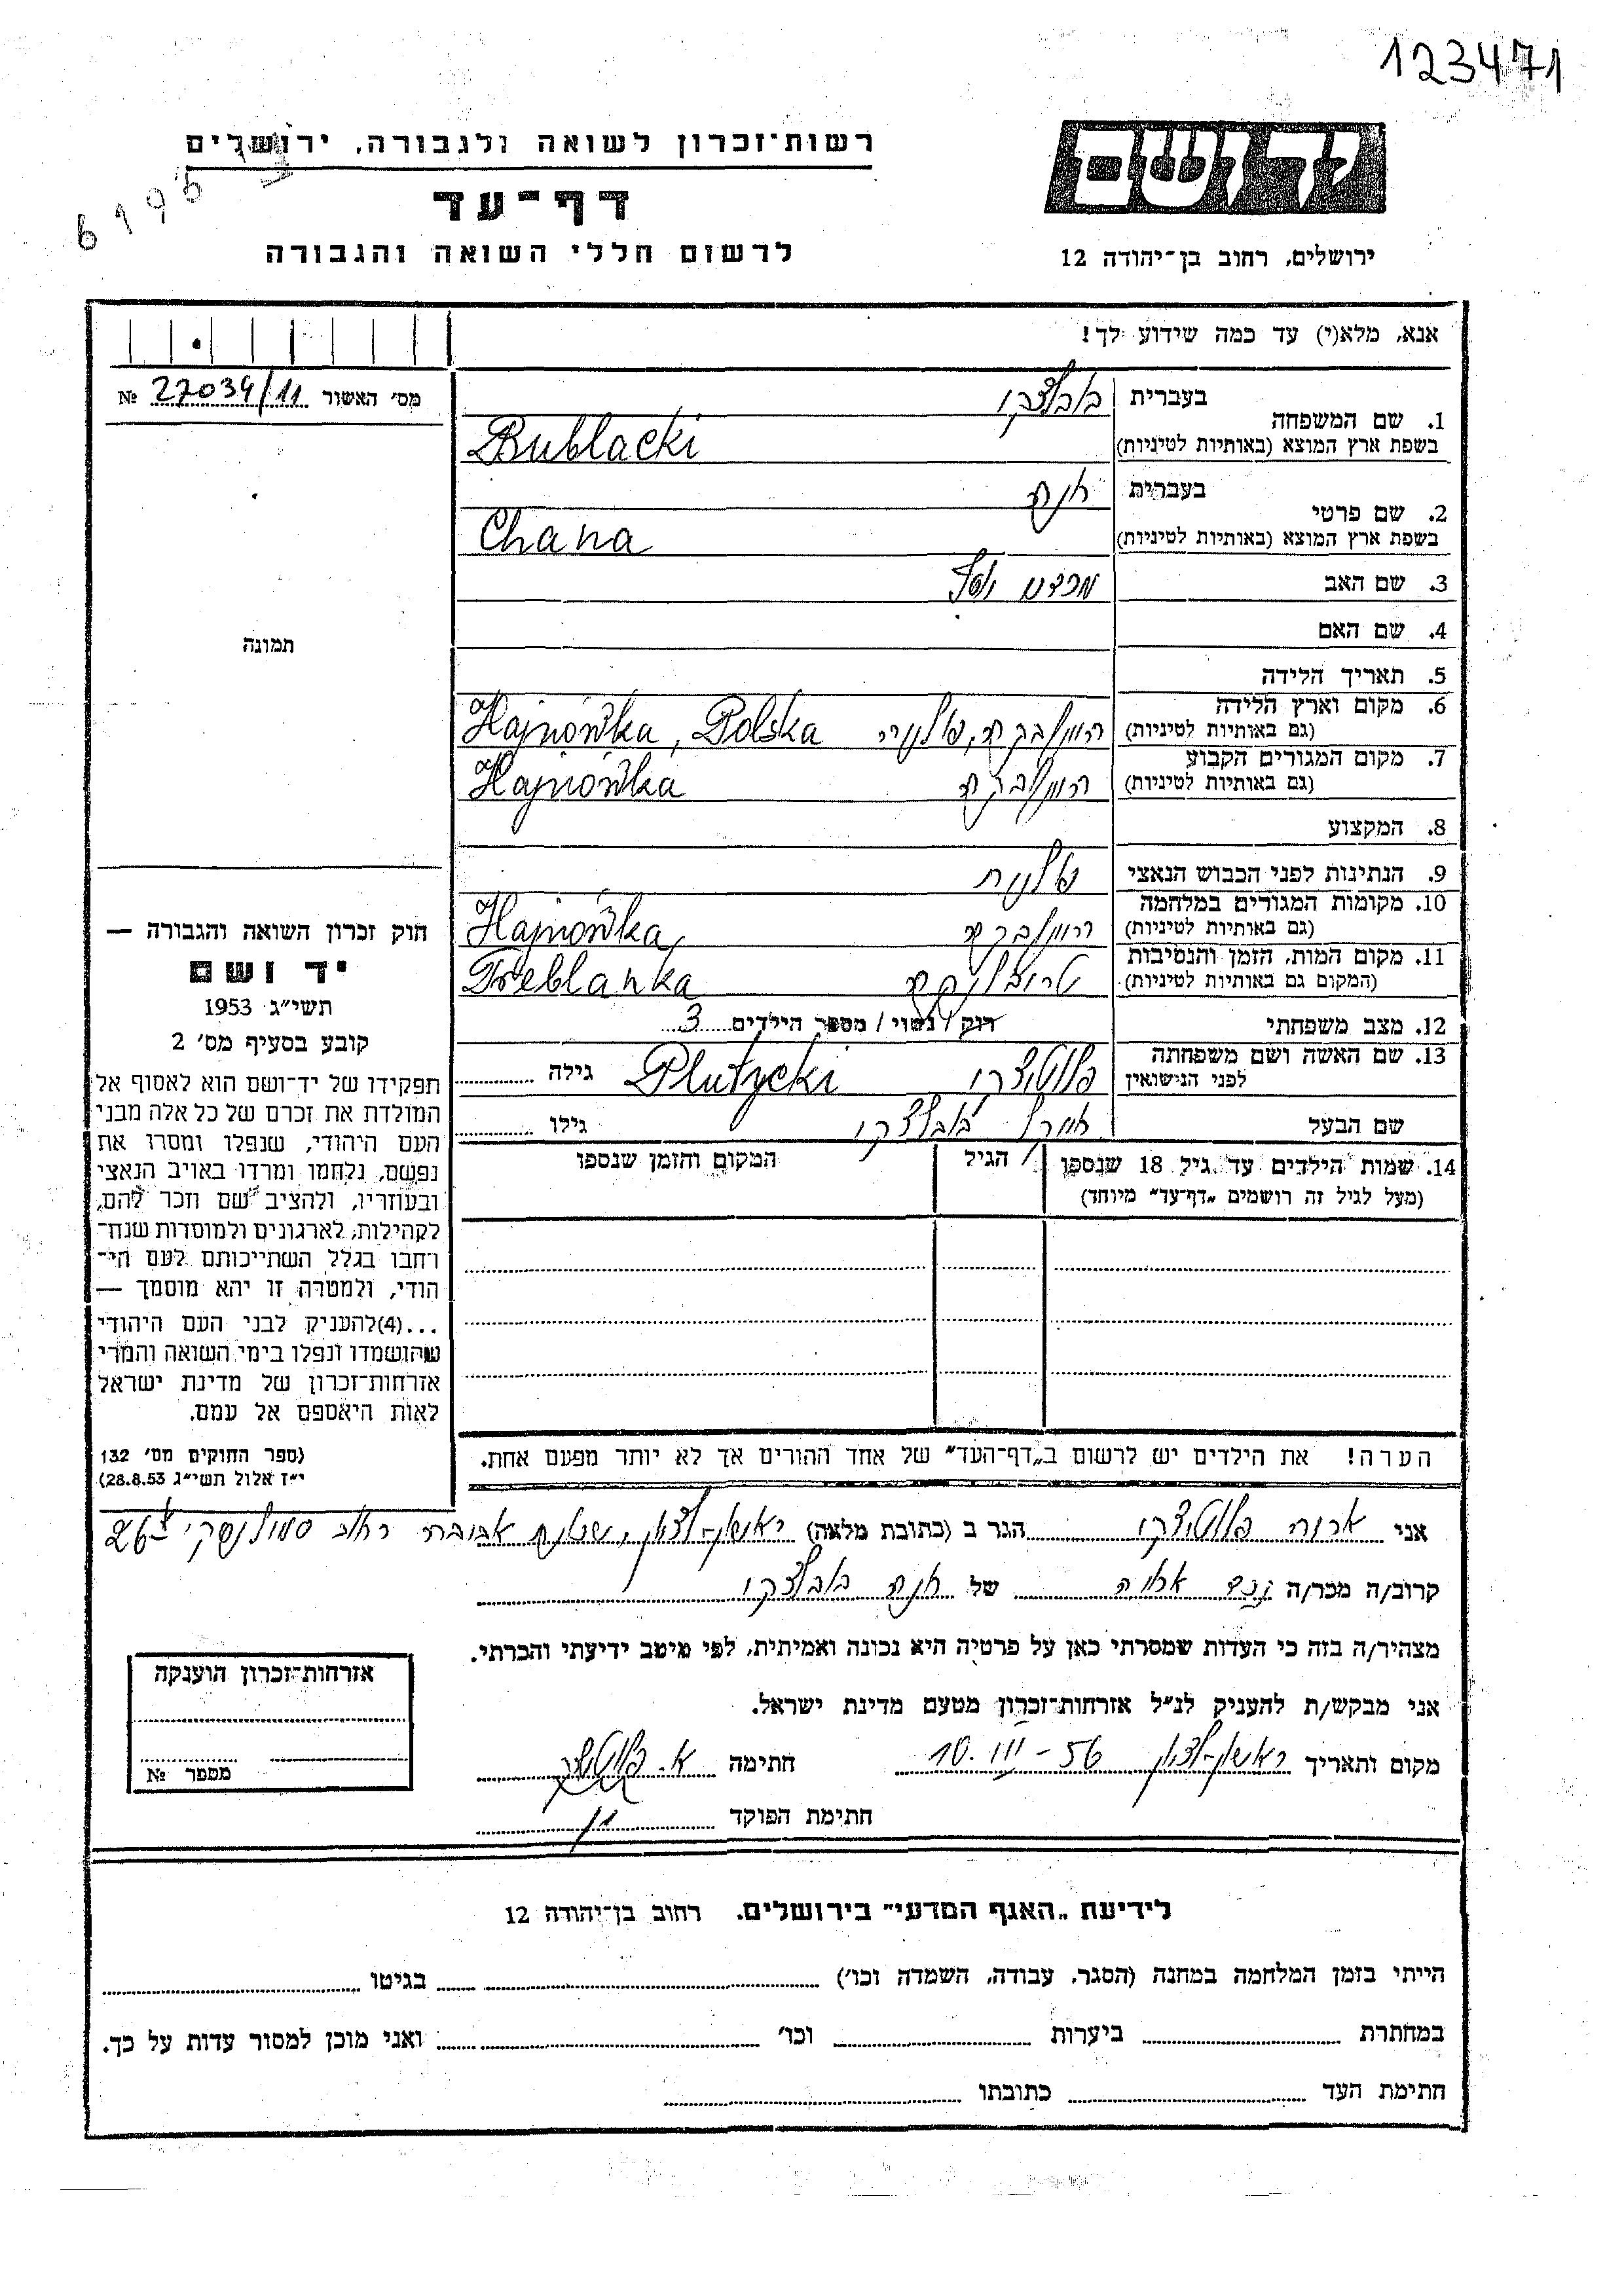 123471
יד ושם
רשות־זכרון לשואה ולגבורה, ירושלים
דף־עד
לרשום חללי השואה והגבורה
ירושלים, רחוב בן־יהודה 12
אנא, מלא(י) עד כמה שידוע לך!
מס׳ האשור № 27034/11
בעברית
1. שם המשפחה
בשפת ארץ המוצא (באותיות לטיניות) Bublacki
בעברית חנה
2. שם פרטי
בשפת ארץ המוצא (באותיות לטיניות) Chana
3. שם האב
4. שם האם
5. תאריך הלידה
6. מקום וארץ הלידה
(גם באותיות לטיניות) Hajnówka, Polska
7. מקום המגורים הקבוע
(גם באותיות לטיניות) Hajnówka
8. המקצוע
9. הנתינות לפני הכבוש הנאצי פולנית
10. מקומות המגורים במלחמה
(גם באותיות לטיניות) Hajnówka
11. מקום המות, הזמן והנסיבות
(המקום גם באותיות לטיניות) טרבלינקה Treblanka
12. מצב משפחתי רוק / נשוי / מספר הילדים 3
13. שם האשה ושם משפחתה
לפני הנישואין פלוטיצקי Plutycki גילה
שם הבעל בובלצקי גילו
14. שמות הילדים עד גיל 18 שנספו
(מעל לגיל זה רושמים „דף־עד״ מיוחד)
הגיל
המקום והזמן שנספו
הערה! את הילדים יש לרשום ב„דף־העד״ של אחד ההורים אך לא יותר מפעם אחת.
תמונה
חוק זכרון השואה והגבורה —
יד ושם
תשי״ג 1953
קובע בסעיף מס׳ 2
תפקידו של יד־ושם הוא לאסוף אל
המולדת את זכרם של כל אלה מבני
העם היהודי, שנפלו ומסרו את
נפשם, נלחמו ומרדו באויב הנאצי
ובעוזריו, ולהציב שם וזכר להם,
לקהילות, לארגונים ולמוסדות שנח־
רחבו בגלל השתייכותם לעם הי־
הודי, ולמטרה זו יהא מוסמך —
...(4)להעניק לבני העם היהודי
שהושמדו ונפלו בימי השואה והמרי
אזרחות־זכרון של מדינת ישראל
לאות היאספם אל עמם.
(ספר החוקים מס׳ 132
י״ז אלול תשי״ג 28.8.53)
אני אריה פלוטיצקי הגר ב (כתובת מלאה) ראשון-לציון, שכונת אברמוביץ רחוב סמולנסקי 26
קרוב/ה מכר/ה של חנה בובלצקי
מצהיר/ה בזה כי העדות שמסרתי כאן על פרטיה היא נכונה ואמיתית, לפי מיטב ידיעתי והכרתי.
אני מבקש/ת להעניק לנ״ל אזרחות־זכרון מטעם מדינת ישראל.
מקום ותאריך ראשון-לציון 10. III - 56 חתימה א. פלוטיצקי
חתימת הפוקד
אזרחות־זכרון הוענקה
מספר №
לידיעת „האגף המדעי״ בירושלים. רחוב בן־יהודה 12
הייתי בזמן המלחמה במחנה (הסגר, עבודה, השמדה וכו׳) בגיטו
במחתרת ביערות וכו׳ ואני מוכן למסור עדות על כך.
חתימת העד כתובתו